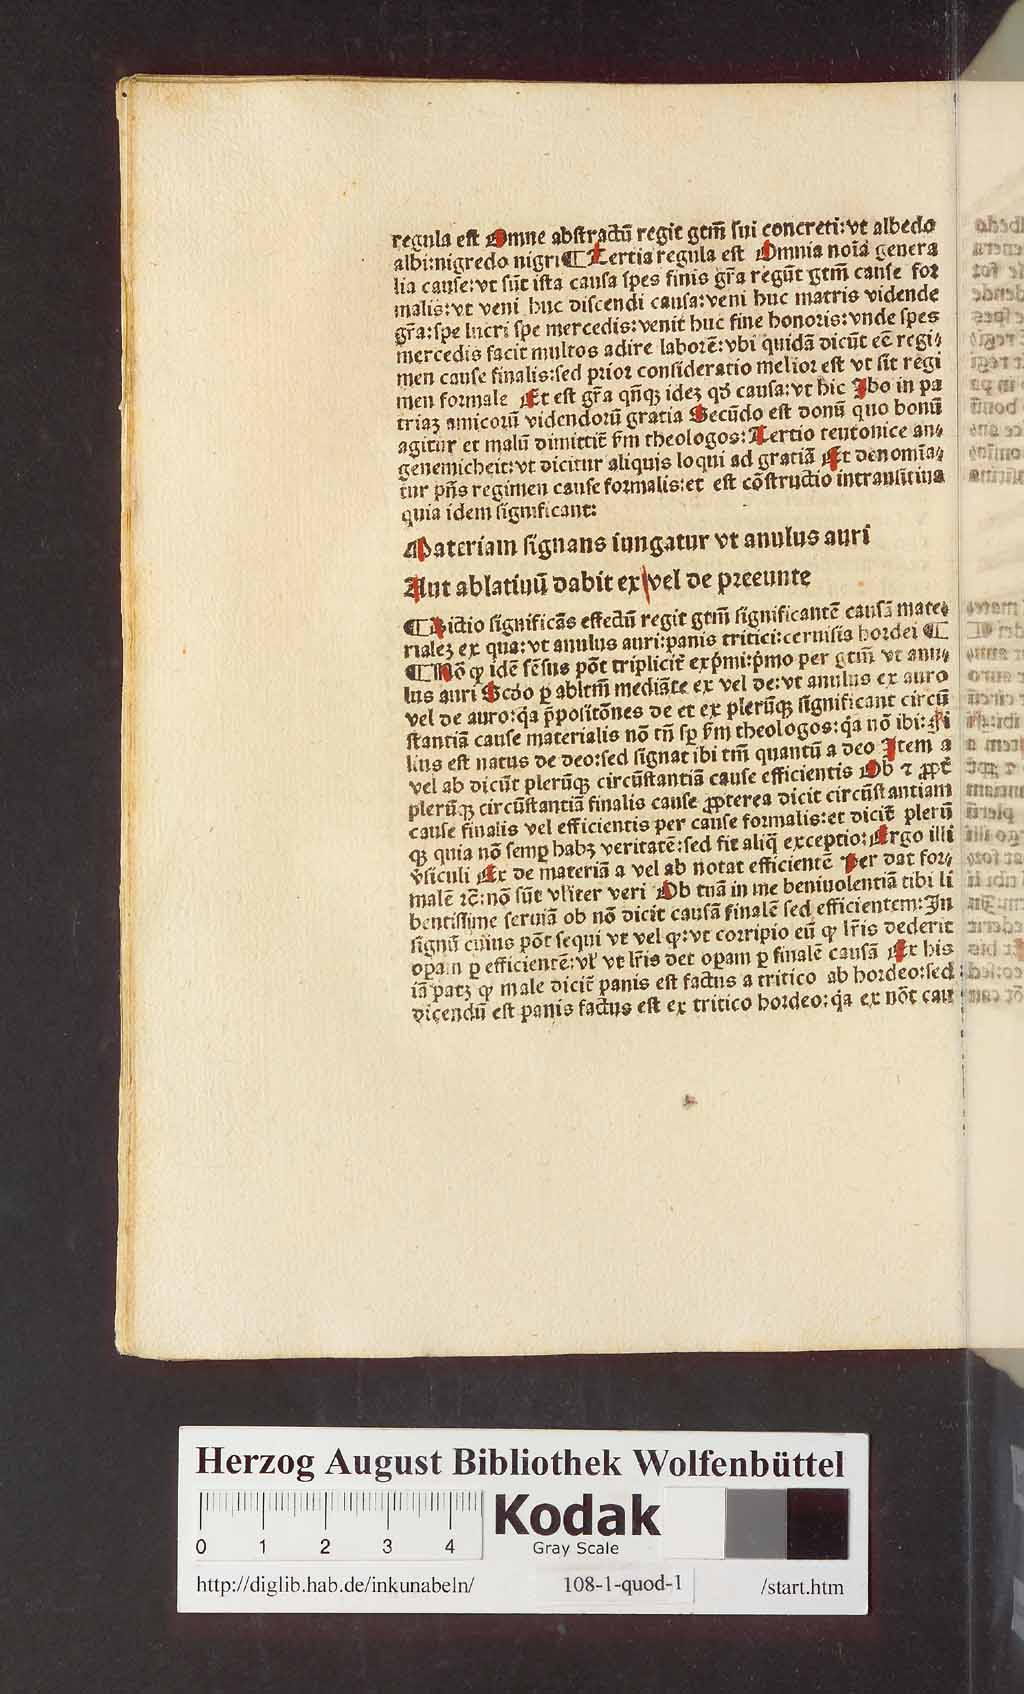 regula est Omne abstractū regit gtm̄ sui concreti: vt albedo
albi: nigredo nigri ¶ Tertia regula est Omnia noīa genera
lia cause: vt sūt ista causa spes finis gr̄a regūt gtm̄ cause for
malis: vt veni huc discendi causa: veni huc matris vidende
gr̄a: spe lucri spe mercedis: venit huc fine honoris: vnde spes
mercedis facit multos adire laborē: vbi quidā dicūt eē regi⸗
men cause finalis: sed prior consideratio melior est vt sit regi
men formale Et est gr̄a qn̄qꝫ ideꝫ qd̄ causa: vt hic Ibo in pa
triaꝫ amicorū videndorū gratia Secūdo est donū quo bonū
agitur et malū dimittit̄ ẜm theologos: Tertio teutonice an⸗
genemicheit: vt dicitur aliquis loqui ad gratiā Et denomīa⸗
t̄ur pn̄s regimen cause formalis: et est cōstructio intransitiua
quia idem significant:
Materiam signans iungatur vt anulus auri
Aut ablatiuū dabit ex vel de preeunte
¶ Dictio significās effectū regit gtm̄ significantē causā mate⸗
rialeꝫ ex qua: vt anulus auri: panis tritici: ceruisia hordei ¶
¶ Nō ꝙ idē sēsus pōt triplicit̄ exp̄mi: p̄mo per gtm̄ vt anu⸗
lus auri Scdo ꝑ abltm̄ mediāte ex vel de: vt anulus ex auro
vel de auro: q̄a p̄positōnes de et ex plerūqꝫ significant circū
stantiā cause materialis nō tn̄ sꝑ ẜm theologos: q̄a nō ibi: Fi
lius est natus de deo: sed signat ibi tm̄ quantū a deo Item a
vel ab dicūt plerūqꝫ circūstantiā cause efficientis Ob ⁊ ꝓpt̄
plerūqꝫ circūstantiā finalis cause ꝓpterea dicit circūstantiam
cause finalis vel efficientis per cause formalis: et dicit̄ plerū
qꝫ quia nō semꝑ habꝫ veritatē: sed fit aliq̄ exceptio: Ergo illi
v̄siculi Ex de materiā a vel ab notat efficientē Per dat for⸗
malē ⁊c̄: nō sūt vl̄iter veri Ob tuā in me beniuolentiā tibi li
bentissime seruiā ob nō dicit causā finalē sed efficientem: In
signū cuius pōt sequi vt vel ꝙ: vt corripio eū ꝙ lr̄is dederit
oꝑam ꝑ efficientē: vl̄ vt lr̄is det oꝑam ꝑ finalē causā Ex his
iā patꝫ ꝙ male dicit̄ panis est factus a tritico ab hordeo: sed
dicendū est panis factus est ex tritico hordeo: q̄a ex nōt cau
Herzog August Bibliothek Wolfenbüttel
0 1 2 3 4
Kodak
Gray Scale
http://diglib.hab.de/inkunabeln/ 108-1-quod-1 /start.htm